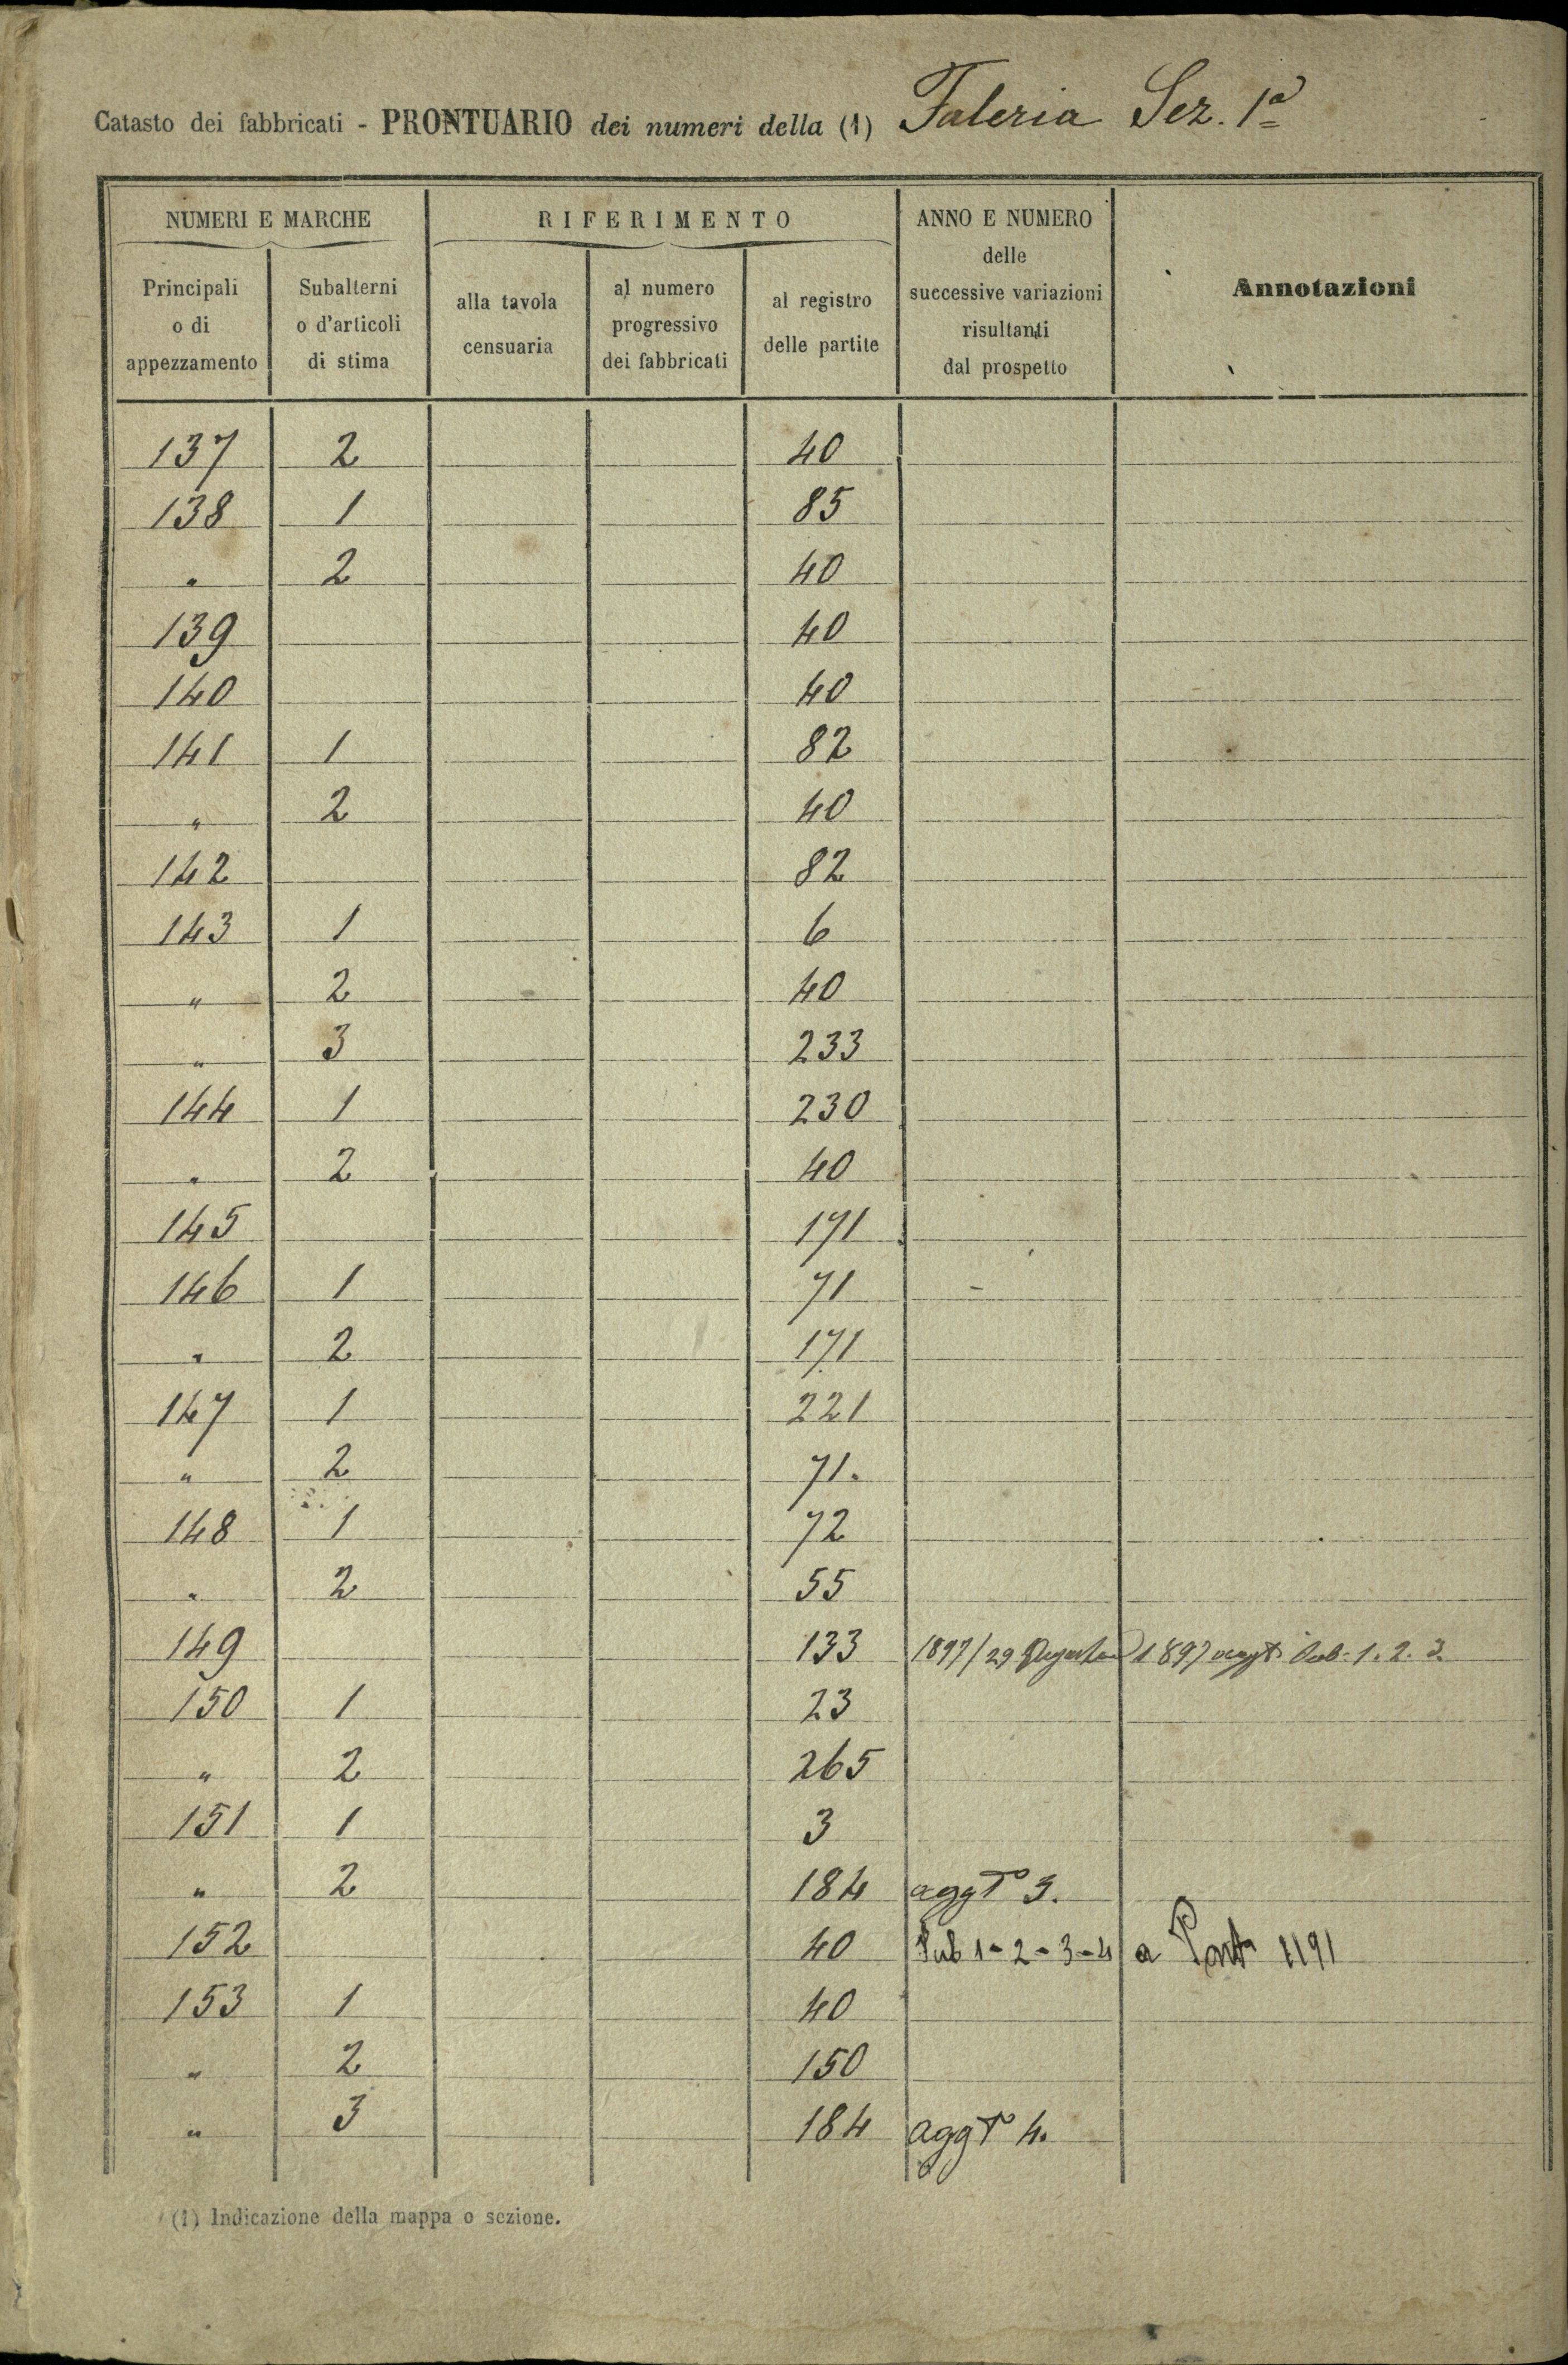 Catasto dei fabbricati - PRONTUARIO dei numeri della (1) Faleria Sez. 1a
NUMERI E MARCHE
RIFERIMENTO
ANNO E NUMERO
delle
successive variazioni
risultanti
dal prospetto
Annotazioni
Principali
o di
appezzamento
Subalterni
o d'articoli
di stima
alla tavola
censuaria
al numero
progressivo
dei fabbricati
al registro
delle partite
137 2 40
138 1 85
" 2 40
139 40
140 40
141 1 82
" 2 40
142 82
143 1 6
" 2 40
" 3 233
144 1 230
" 2 40
145 171
146 1 71
" 2 171
147 1 221
" 2 71.
148 1 72
" 2 55
149 133 1897/29 1897 Sub. 1. 2. 3.
150 1 23
" 2 265
151 1 3
" 2 184 aggto 3.
152 40 Sub 1-2-3-4 a 1191
153 1 40
" 2 150
" 3 184 aggto 4.
(1) Indicazione della mappa o sezione.